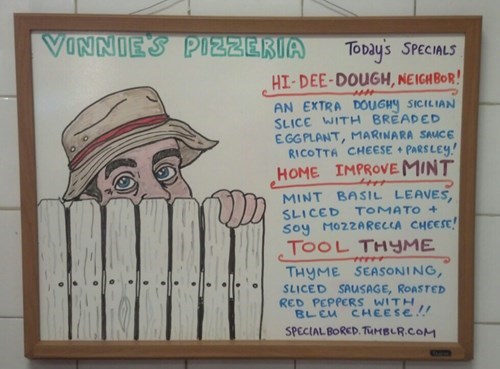 VINNIE'S PIZZERIA
TODAY'S SPECIALS
HI-DEE-DOUGH, NEIGHBOR!
AN EXTRA DOUGHY SICILIAN
SLICE WITH BREADED
EGGPLANT, MARINARA SAUCE
RICOTTA CHEESE + PARSLEY!
HOME IMPROVEMINT
MINT BASIL LEAVES,
SLICED TOMATO +
SOY MOZZARELLA CHEESE!
TOOL THYME
THYME SEASONING,
SLICED SAUSAGE, ROASTED
RED PEPPERS WITH
BLEU CHEESE!!
SPECIALBORED.TUMBLR.COM